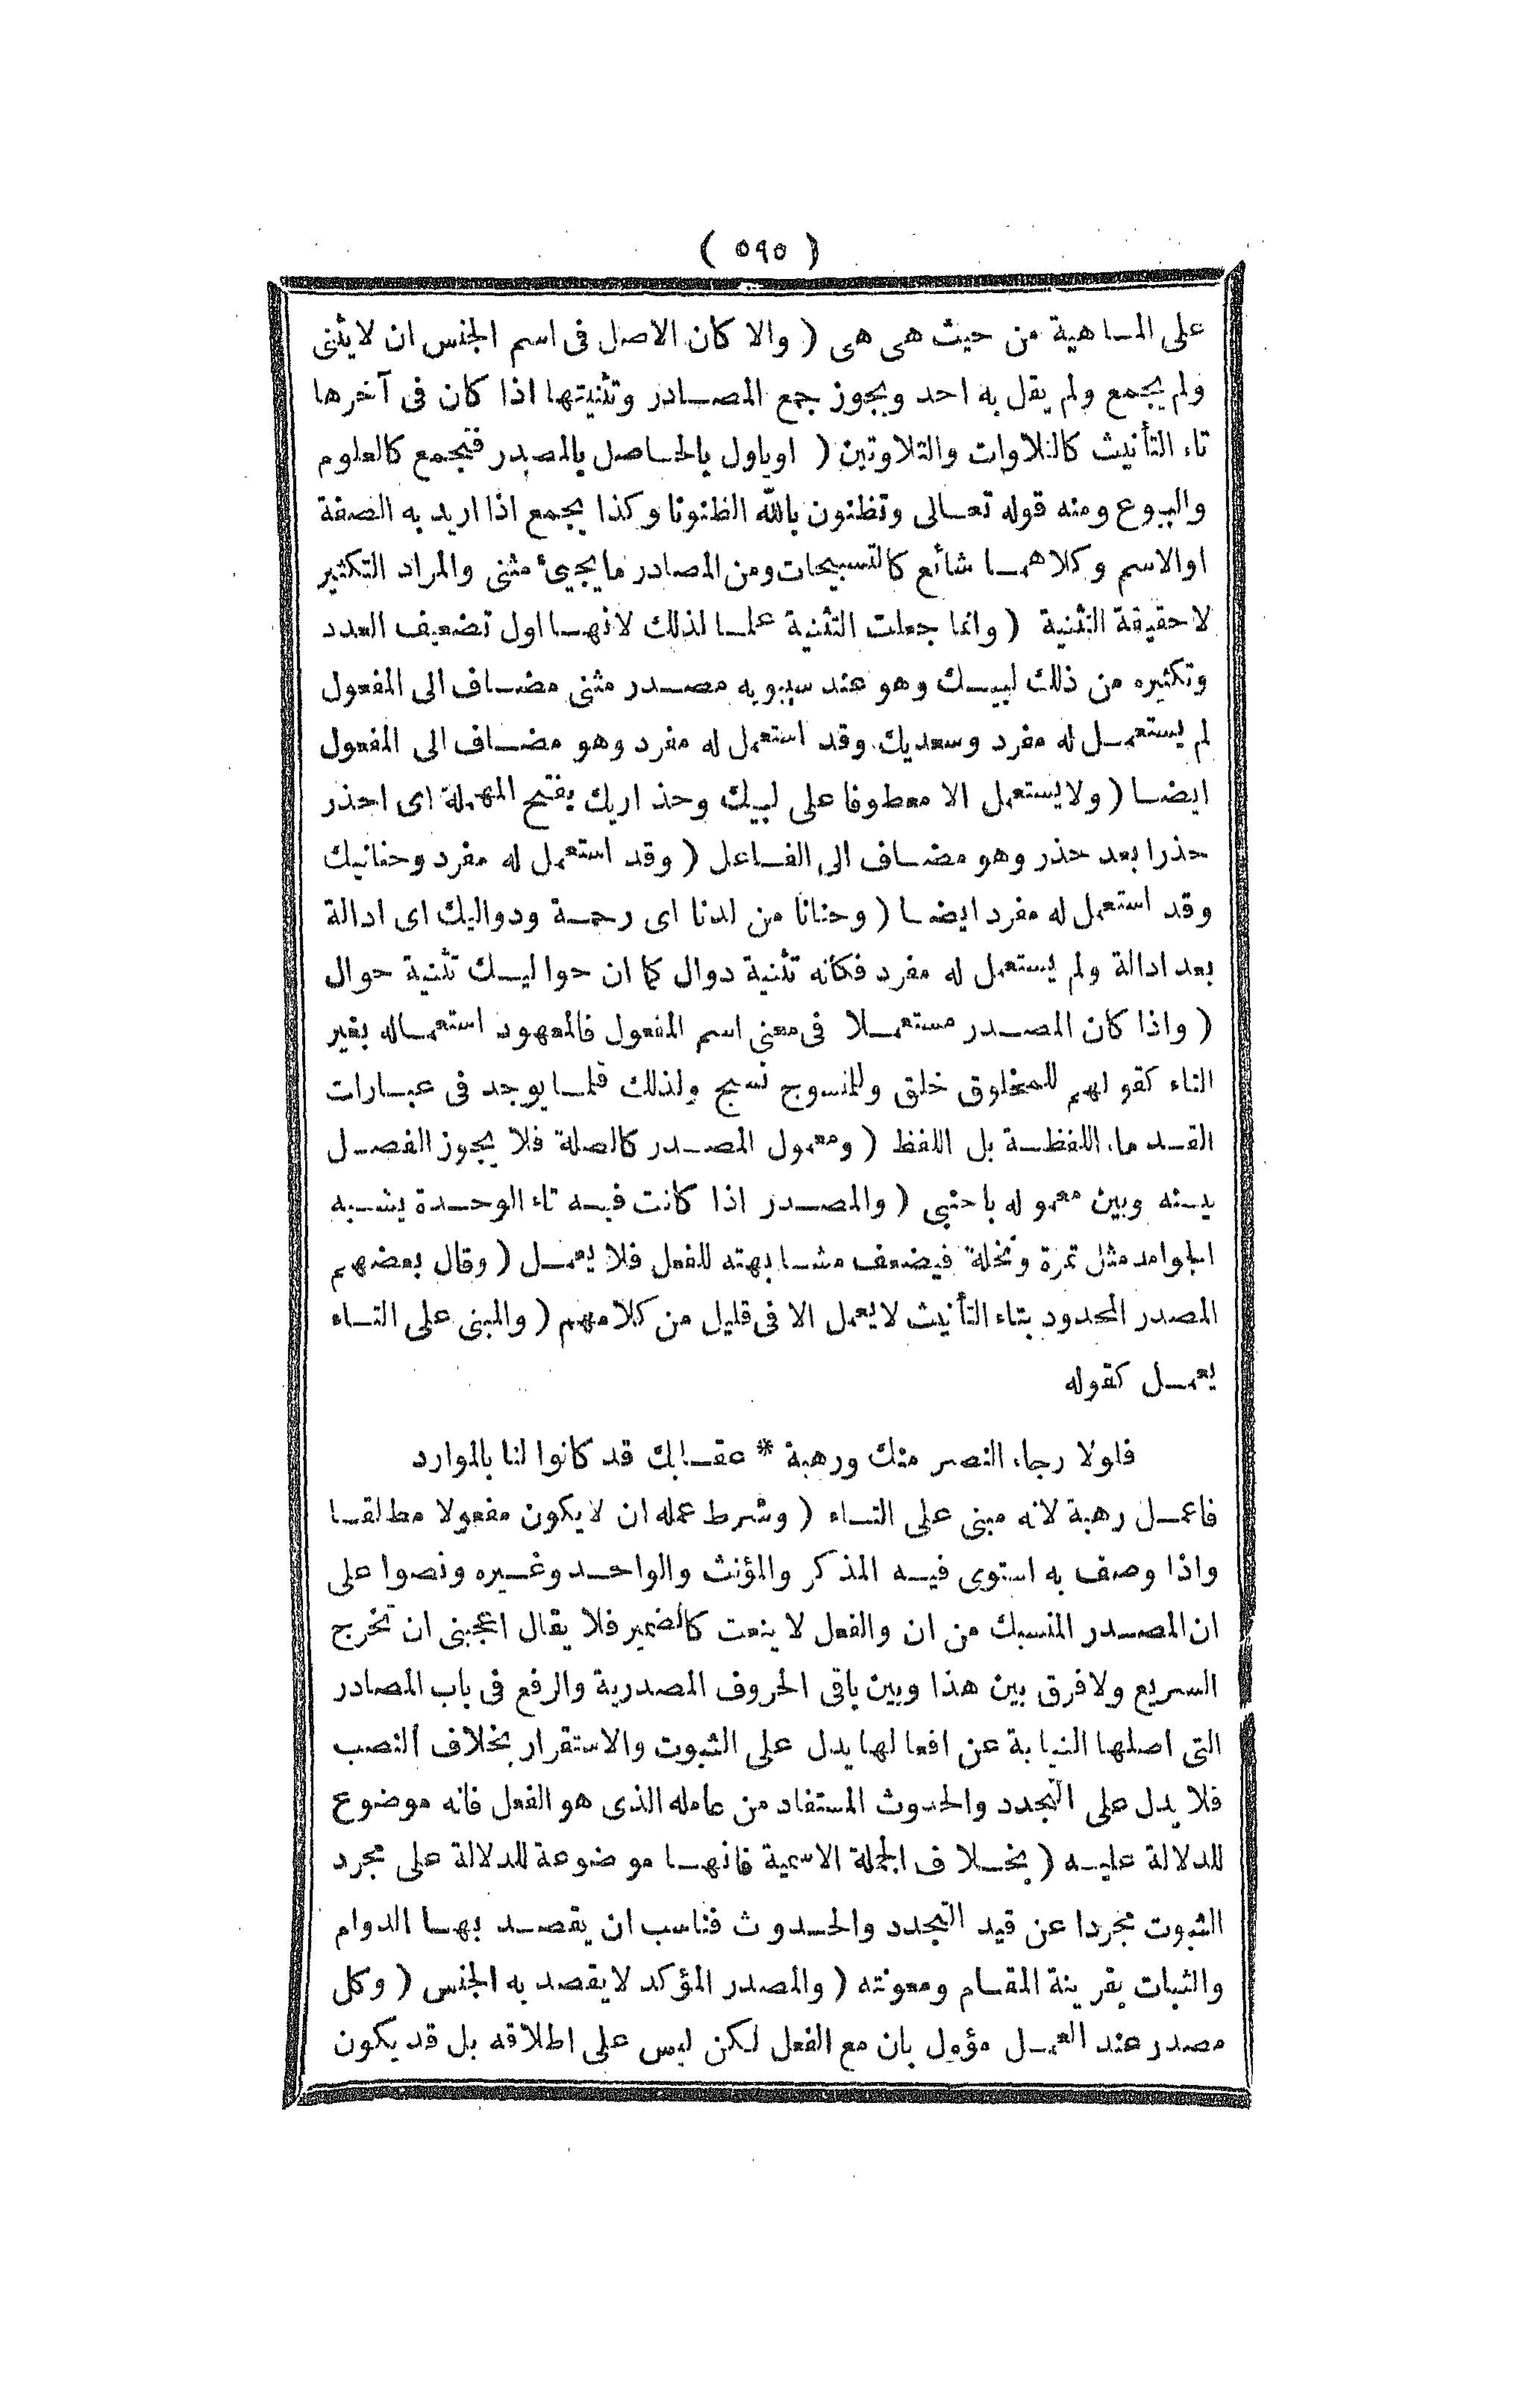 ( ٥٩٥ )
على الماهية من حيث هى هى ( والا كان الاصل فى اسم الجنس ان لايثنى
ولم يجمع ولم يقل به احد ويجوز جمع المصادر وتثنيتها اذا كان فى آخرها
تاء التأنيث كالتلاوات والتلاوتين ( اوياول بالحاصل بالمصدر فتجمع كالعلوم
والبيوع ومنه قوله تعالى وتظنون بالله الظنونا وكذا يجمع اذا اريد به الصفة
اوالاسم وكلاهما شائع كالتسبيحات ومن المصادر مايجيئ مثنى والمراد التكثير
لاحقيقة التثنية ( وانما جعلت التثنية علما لذلك لانها اول تضعيف العدد
وتكثيره من ذلك لبيك وهو عند سيبويه مصدر مثنى مضاف الى المفعول
لم يستعمل له مفرد وسعديك وقد استعمل له مفرد وهو مضاف الى المفعول
ايضا ( ولايستعمل الا معطوفا على لبيك وحذاريك بفتح المهملة اى احذر
حذرا بعد حذر وهو مضاف الى الفاعل ( وقد استعمل له مفرد وحنانيك
وقد استعمل له مفرد ايضا ( وحنانا من لدنا اى رحمة ودواليك اى ادالة
بعد ادالة ولم يستعمل له مفرد فكأنه تثنية دوال كما ان حواليك تثنية حوال
( واذا كان المصدر مستعملا فى معنى اسم المفعول فالمعهود استعماله بغير
التاء كقولهم للمخلوق خلق وللمنسوج نسج ولذلك قلما يوجد فى عبارات
القدماء اللفظة بل اللفظ ( ومعمول المصدر كالصلة فلا يجوز الفصل
بينه وبين معموله باجنبى ( والمصدر اذا كانت فيه تاء الوحدة يشبه
الجوامد مثل تمرة ونخلة فيضعف مشابهته للفعل فلا يعمل ( وقال بعضهم
المصدر المحدود بتاء التأنيث لايعمل الا فى قليل من كلامهم ( والمبنى على التاء
يعمل كقوله
فلولا رجاء النصر منك ورهبة * عقابك قد كانوا لنا بالموارد
فاعمل رهبة لانه مبنى على التاء ( وشرط عمله ان لايكون مفعولا مطلقا
واذا وصف به استوى فيه المذكر والمؤنث والواحد وغيره ونصوا على
ان المصدر المنسبك من ان والفعل لا ينعت كالضمير فلا يقال اعجبنى ان تخرج
السريع ولافرق بين هذا وبين باقى الحروف المصدرية والرفع فى باب المصادر
التى اصلها النيابة عن افعالها يدل على الثبوت والاستقرار بخلاف النصب
فلا يدل على التجدد والحدوث المستفاد من عامله الذى هو الفعل فانه موضوع
للدلالة عليه ( بخلاف الجملة الاسمية فانها موضوعة للدلالة على مجرد
الثبوت مجردا عن قيد التجدد والحدوث فناسب ان يقصد بها الدوام
والثبات بقرينة المقام ومعونته ( والمصدر المؤكد لايقصد به الجنس ( وكل
مصدر عند العمل مؤول بان مع الفعل لكن ليس على اطلاقه بل قد يكون